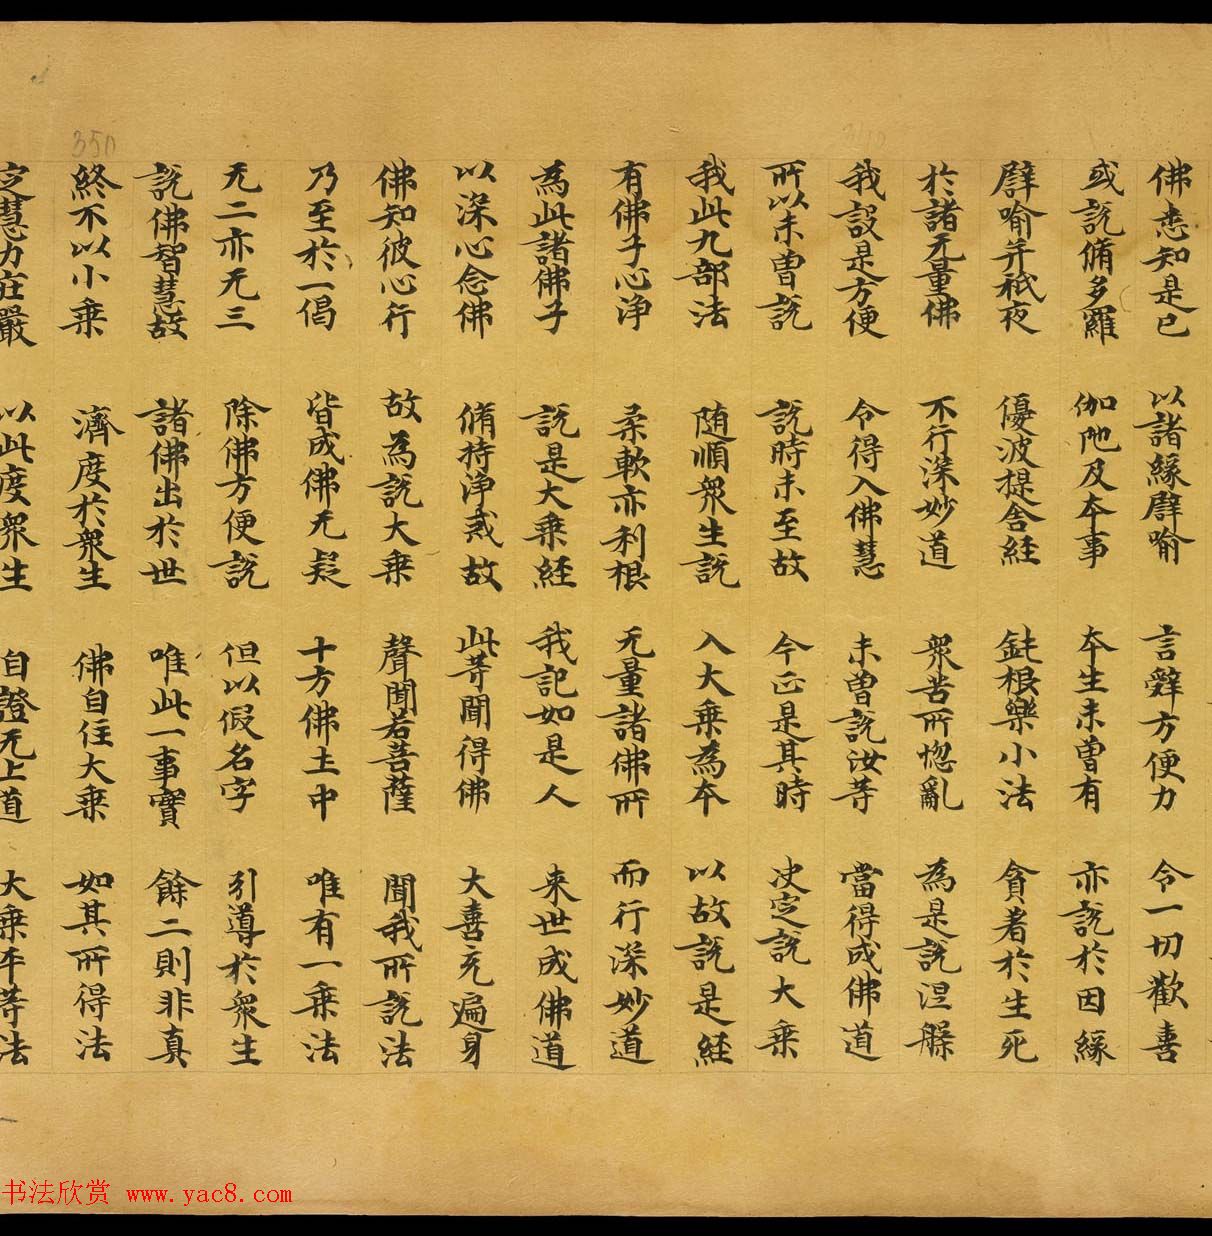 佛悉知是已 以諸緣譬喻 言辭方便力 令一切歡喜
或說脩多羅 伽陁及本事 本生未曾有 亦說於因緣
譬喻并祇夜 優波提舍經 鈍根樂小法 貪著於生死
於諸无量佛 不行深妙道 衆苦所惚亂 為是說涅槃
我設是方便 令得入佛慧 未曾說汝等 當得成佛道
所以未曾說 說時未至故 今正是其時 决定說大乘
我此九部法 随順衆生說 入大乘為本 以故說是經
有佛子心淨 柔軟亦利根 无量諸佛所 而行深妙道
為此諸佛子 說是大乘經 我記如是人 来世成佛道
以深心念佛 脩持淨戒故 此等聞得佛 大喜充遍身
佛知彼心行 故為說大乘 聲聞若菩薩 聞我所說法
乃至於一偈 皆成佛无疑 十方佛土中 唯有一乘法
无二亦无三 除佛方便說 但以假名字 引導於衆生
說佛智慧故 諸佛出於世 唯此一事實 餘二則非真
終不以小乘 濟度於衆生 佛自住大乘 如其所得法
定慧力莊嚴 以此度衆生 自證无上道 大乘平等法
350
书法欣赏 www.yac8.com